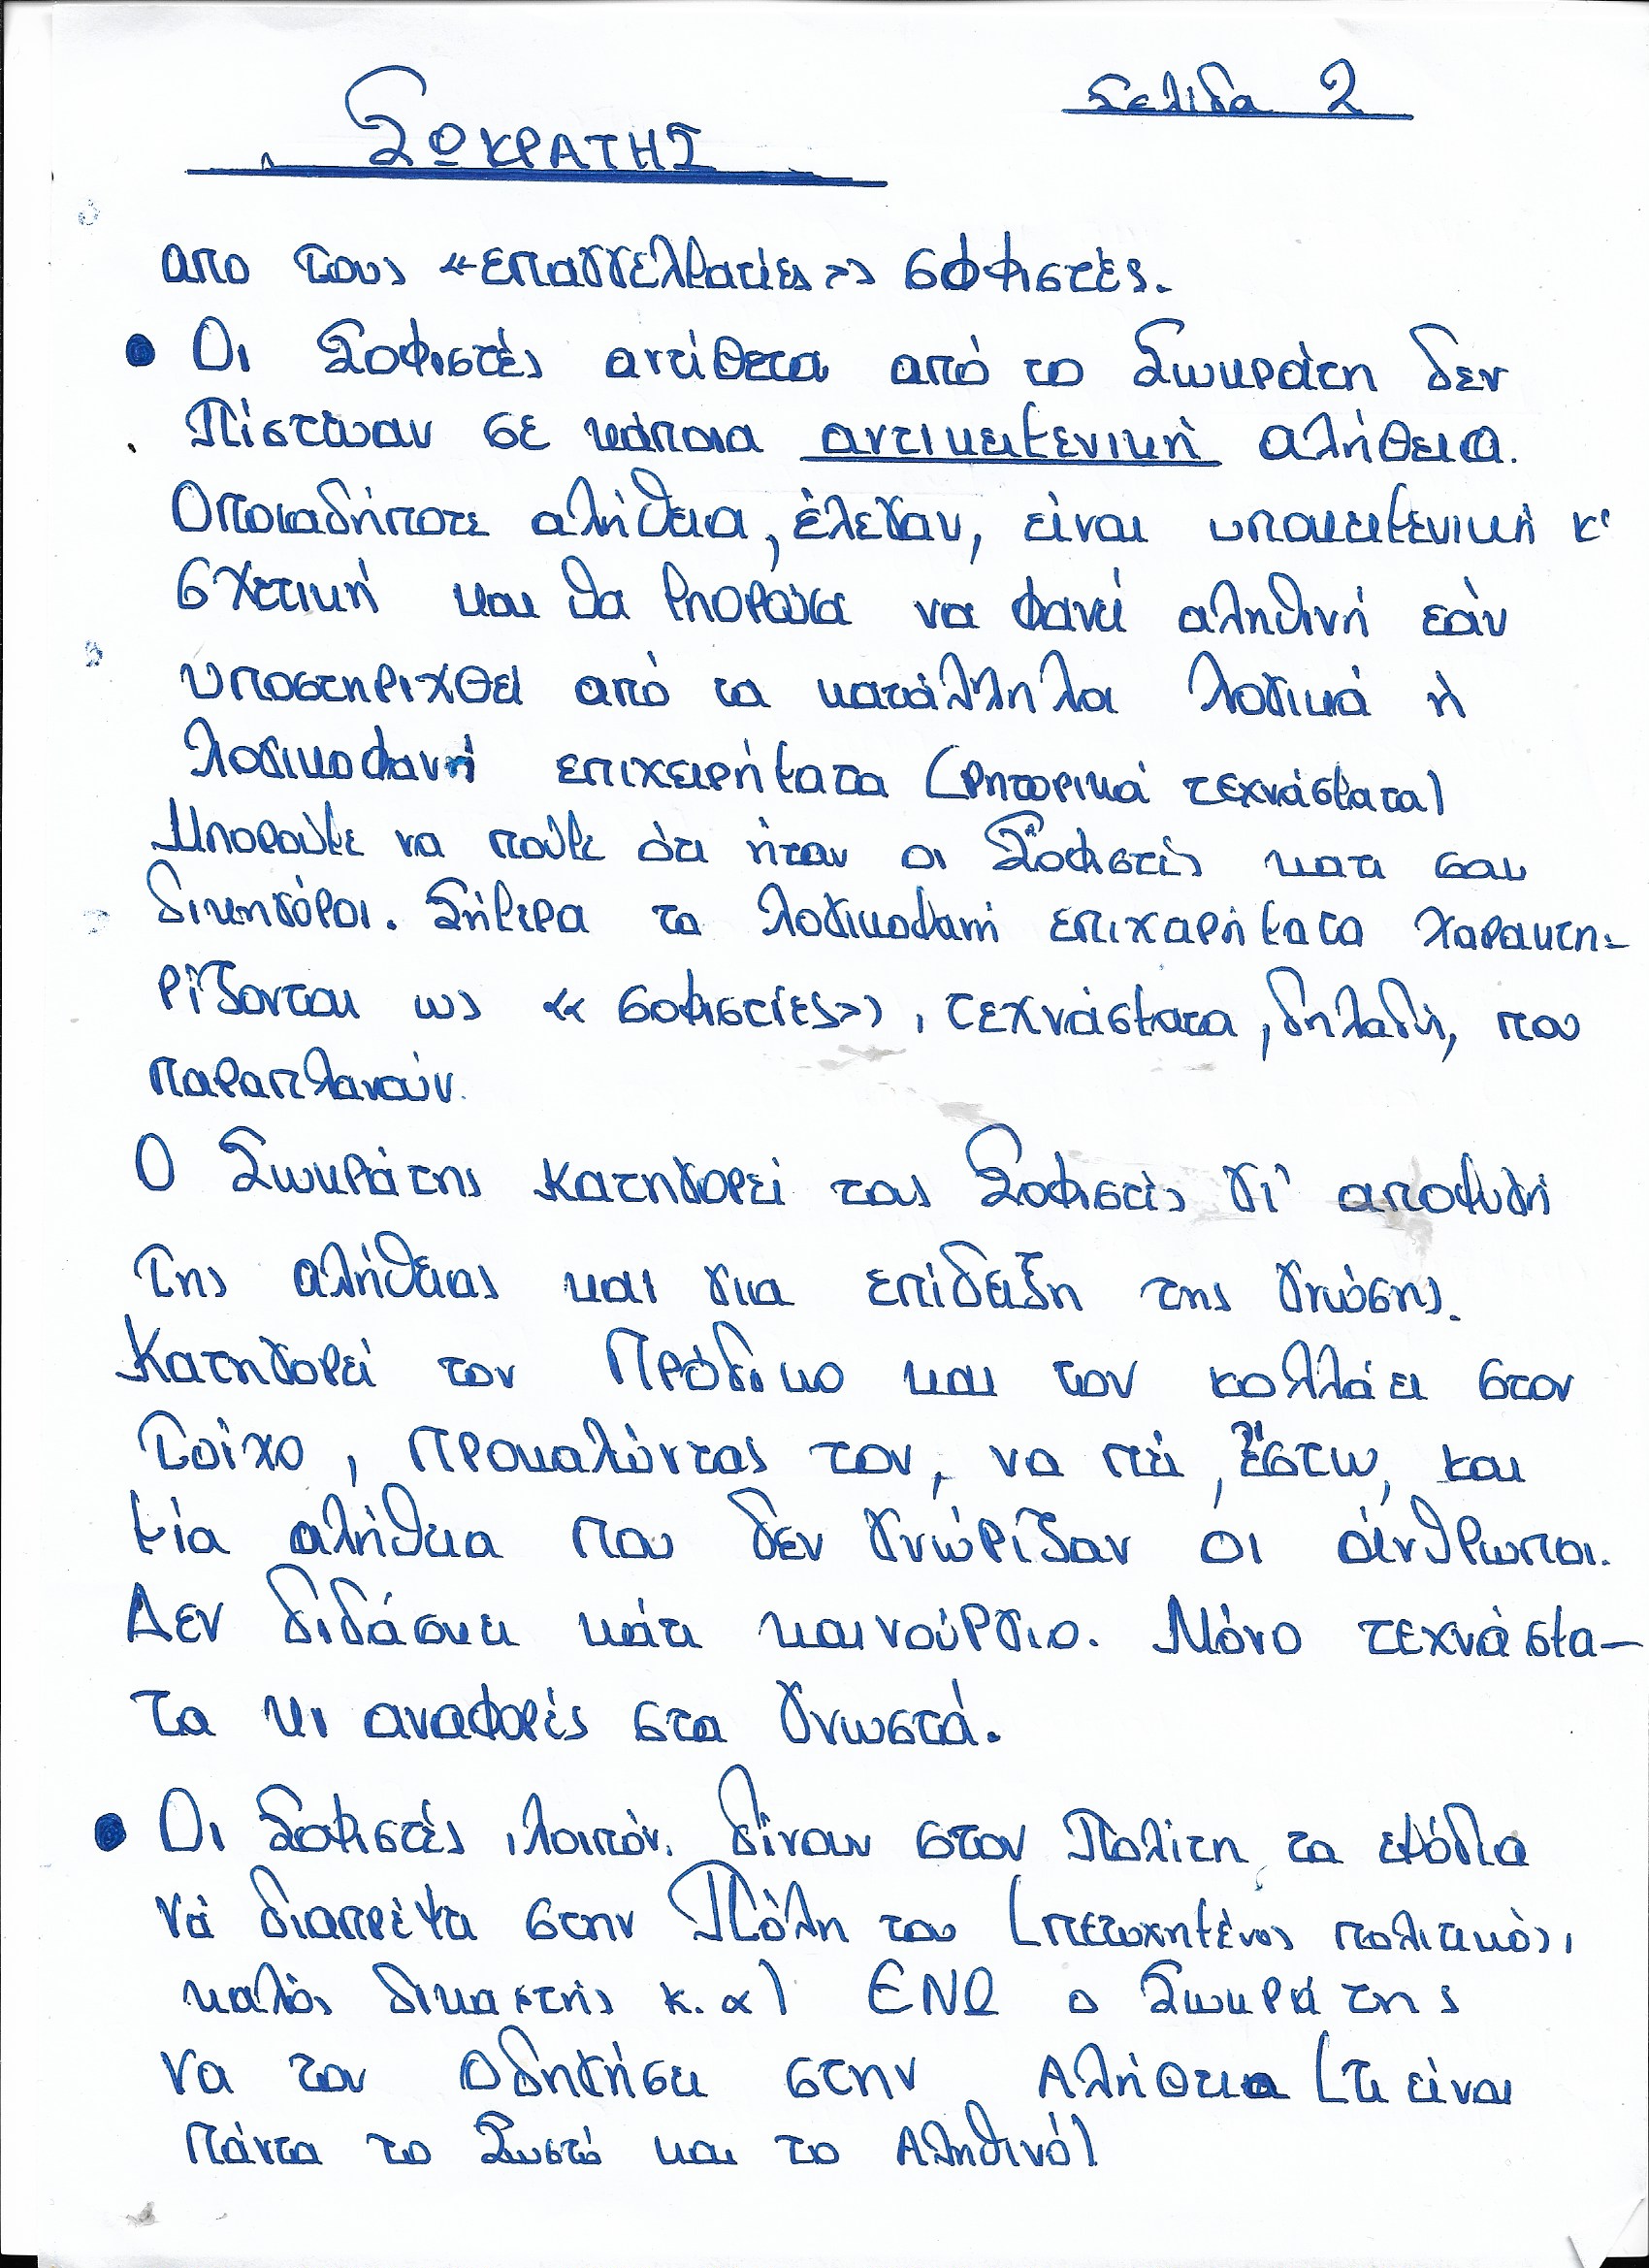 Σελιδα 2
ΣΩΚΡΑΤΗΣ
απο τους «επαγγελματίες» σοφιστές.
• Οι Σοφιστές αντίθετα από το Σωκράτη δεν
Πίστευαν σε κάποια αντικειμενική αλήθεια.
Οποιαδήποτε αλήθεια, έλεγαν, είναι υποκειμενική κ'
σχετική και θα μπορούσε να φανεί αληθινή εάν
υποστηριχθεί από τα κατάλληλα λογικά ή
λογικοφανή επιχειρήματα (ρητορικά τεχνάσματα)
Μπορούμε να πούμε ότι ήταν οι Σοφιστές κατι σαν
δικηγόροι. Σήμερα τα λογικοφανή επιχειρήματα χαρακτη-
ρίζονται ως «σοφιστίες», τεχνάσματα, δηλαδή, που
παραπλανούν.
Ο Σωκράτης κατηγορεί τους Σοφιστές γι' αποφυγή
της αλήθειας και για επίδειξη της γνώσης.
Κατηγορεί τον Πρόδικο και τον κολλάει στον
τοίχο, προκαλώντας τον, να πεί, έστω, και
μία αλήθεια που δεν γνώριζαν οι άνθρωποι.
Δεν διδάσκει κάτι καινούργιο. Μόνο τεχνάσμα-
τα κι αναφορές στα γνωστά.
• Οι Σοφιστές, λοιπόν, δίνουν στον Πολίτη τα εφόδια
νά διαπρέψει στην Πόλη του (πετυχημένος πολιτικός,
καλός δικαστής κ.α) ΕΝΩ ο Σωκράτης
να τον οδηγήσει στην Αλήθεια (τι είναι
Πάντα το Σωστό και το Αληθινό)